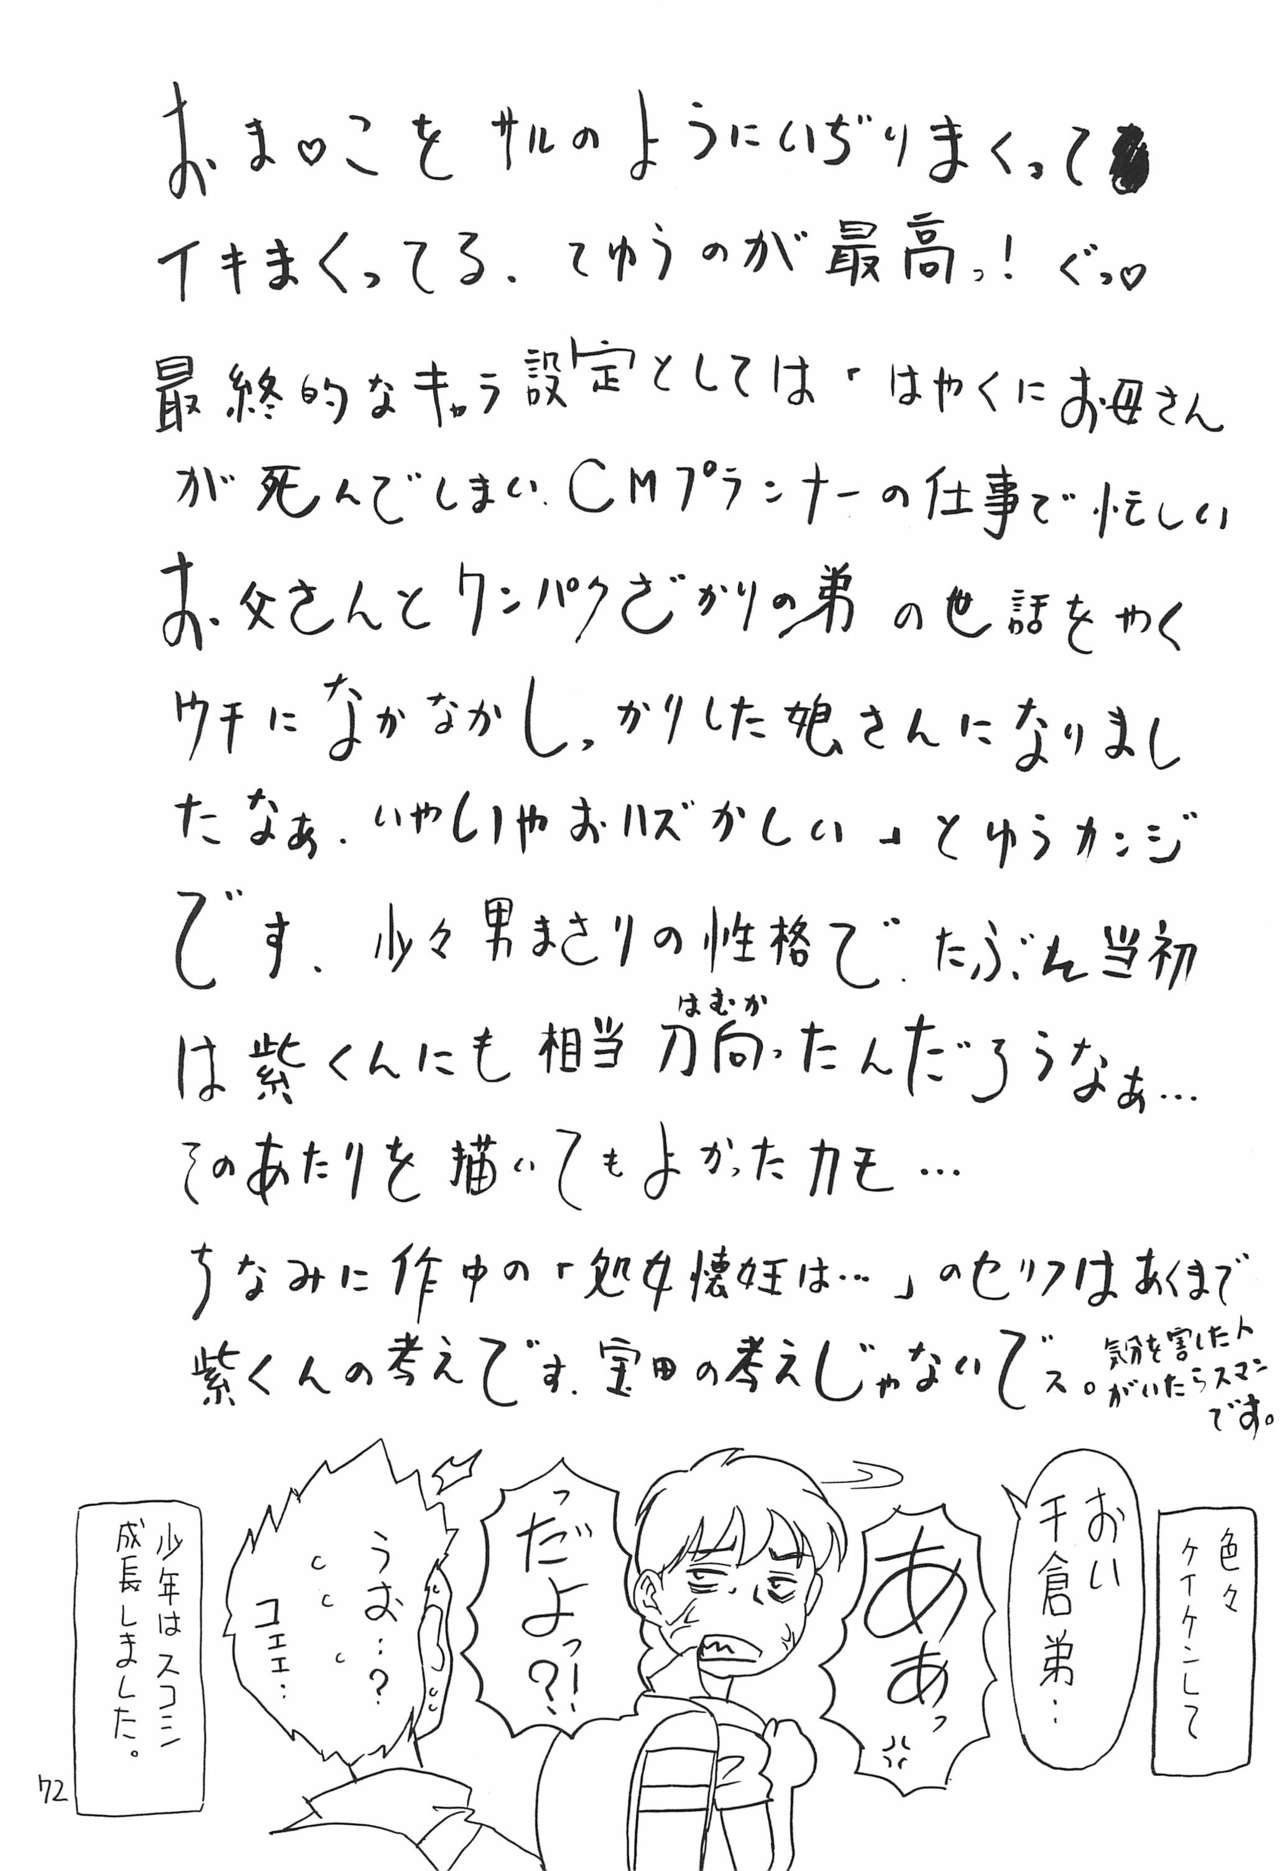 おま♡こをサルのようにいぢりまくって
イキまくってる、てゆうのが最高っ！ぐっ♡
最終的なキャラ設定としては「はやくにお母さん
が死んでしまい、CMプランナーの仕事で忙しい
お父さんとワンパクざかりの弟の世話をやく
ウチになかなかしっかりした娘さんになりまし
たなぁ、いやいやおハズかしい」とゆうカンジ
です、少々男まさりの性格で、たぶん当初
は紫くんにも相当刃向ったんだろうなぁ…
はむか
そのあたりを描いてもよかったカモ…
ちなみに作中の「処女懐妊は…」のセリフはあくまで
紫くんの考えです、宝田の考えじゃないでス。
気分を害した人
がいたらスマン
です。
色々
ケイケンして
おい
千倉弟…
あぁっ
っだよっ?!
うお…?
コエエ…
少年はスコシ
成長しました。
72